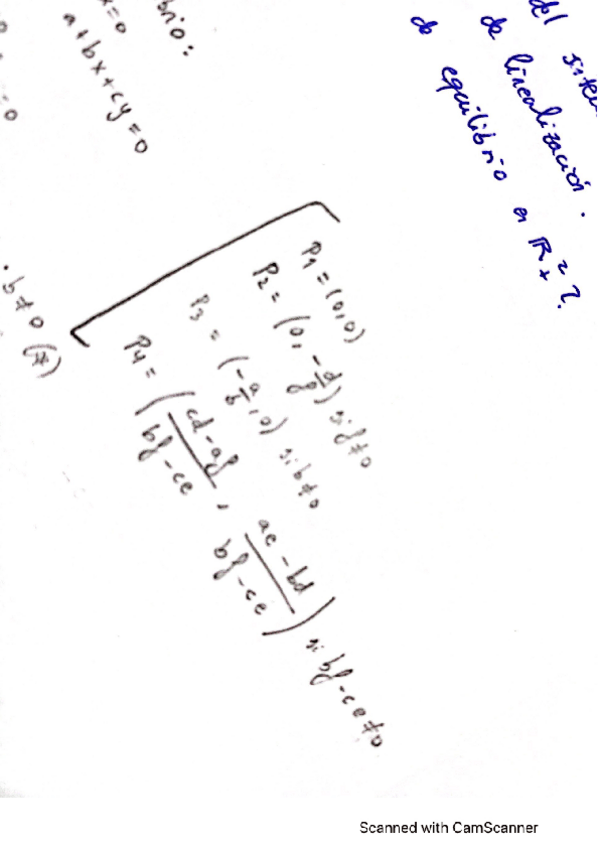 del
de linealización.
de equilibrio en ℝ₊²?
brio:
x=0
a+bx+cy=0
P1 = (0,0)
P2 = (0, -d/f) si f≠0
P3 = (-a/b, 0) si b≠0
P4 = ( cd-af / bf-ce , ae-bd / bf-ce ) si bf-ce≠0
=0
· b≠0 (*)
Scanned with CamScanner